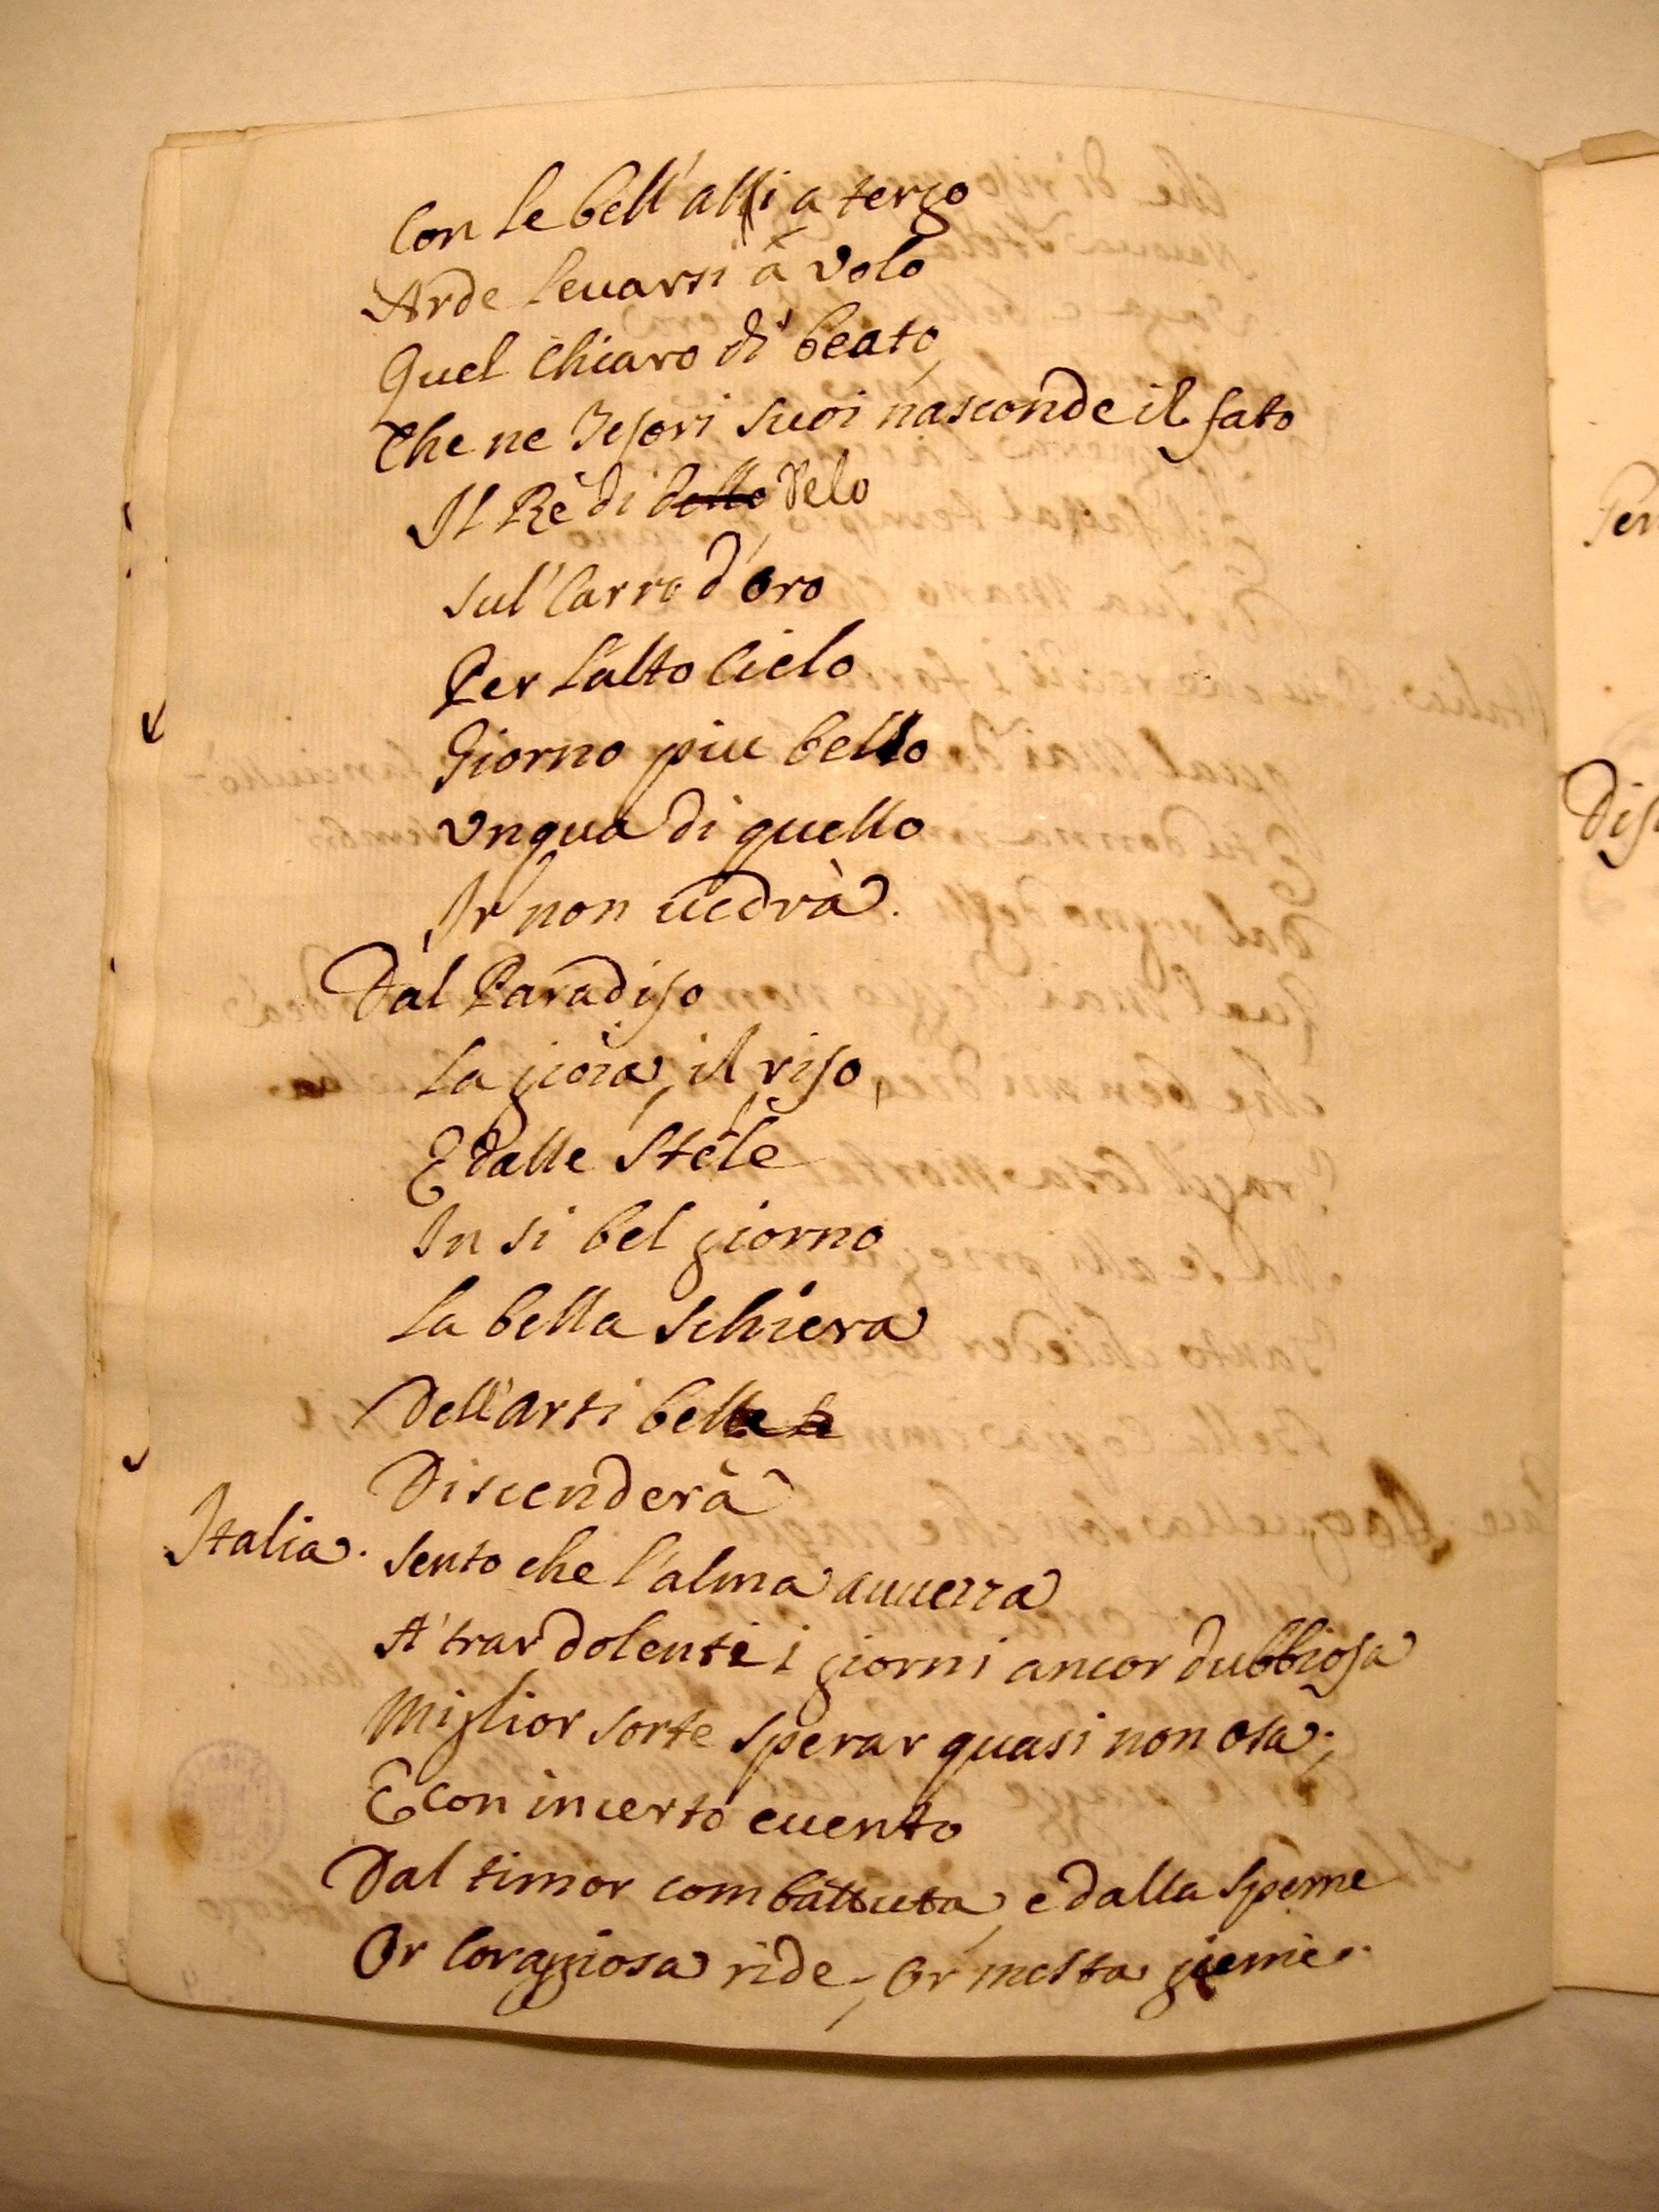 Con le bell'alli a tergo
Arde leuarsi à volo
Quel chiaro dì beato,
Che ne Tesori suoi nasconde il fato
Il Rè di dello Delo
Sul' Carro d'oro
Per l'alto Cielo
Giorno piu bello
Vnqua di quello
Ir non uedrà.
Dal Paradiso
La gioia, il riso,
E dalle Stele
In si bel giorno
La bella schiera
Dell'arti belle
Discenderà
Italia. Sento che l'alma auuezza
A' trar dolenti i giorni ancor dubbiosa
Miglior sorte sperar quasi non osa;
E con incerto euento
Dal timor combattuta, e dalla speme
Or coraggiosa ride, Or mesta geme.
Per
Dis